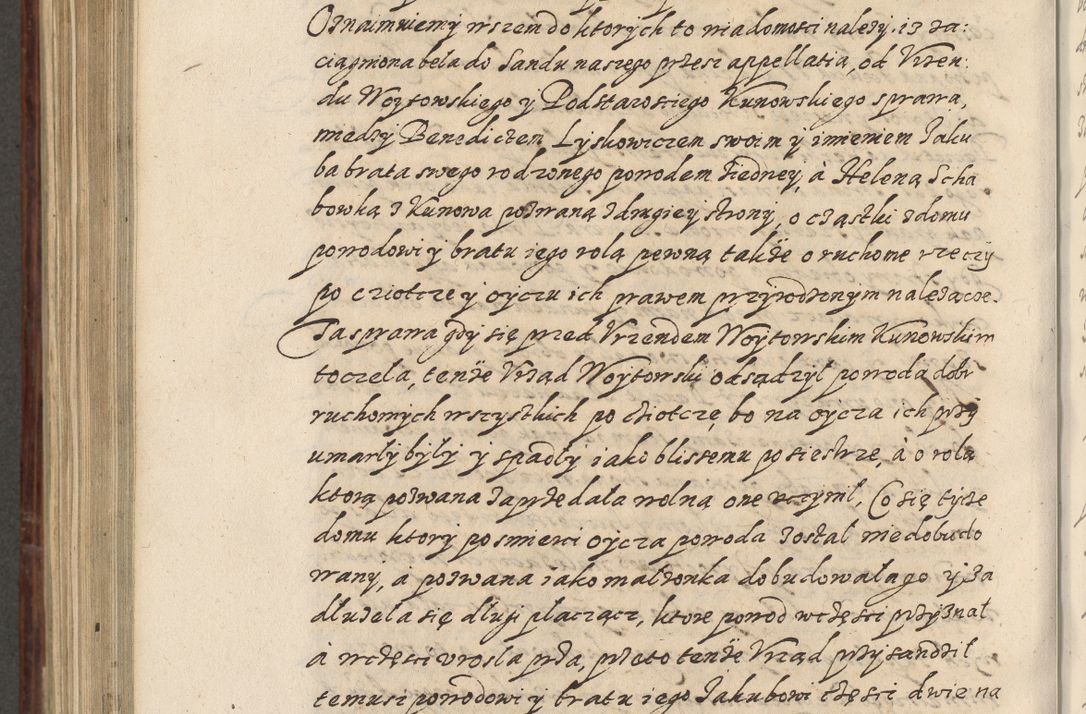 Oznaimuiemy wszem do ktorych to wiadomosci nalezy. iz za:
ciągniona bela do Sandu naszego przesz appellatia, od Vrzen:
du Woytowskiego y Podstarosciego Kunowskiego sprawa,
miedzy Benedictem Lyskowiczem swoim y imieniem Jaku
ba brata swego rodzonego powodem z iedney, à Heleną Scha
bowką z Kunowa pozwaną z drugiey strony, o cząstki z domu
powodowi y bratu iego rolą pewną także o ruchome rzeczy
po cziotcze y oyczu ich prawem przyrodzonym należącoe.
Ta sprawa gdy się przed Vrzendem Woytowskim Kunowskim
toczela, tenże Vrząd Woytowski odsądzyl powoda dobr
ruchomych wszystkich po cziotczę, bo na oycza ich przy
umarly byly y spadly iako blissemu po siestrze, à o rolą
ktorą pozwana zaprzedala wolną one vczynil, Co się tycze
domu ktory po smierci oycza powoda zostal niedobudo
wany, à pozwana iako malzonka dobudowala go y za
dluzela się dlugi placzącz, ktore powod w części przyznal
à w części vrosla prza, przeto tenże Vrząd przysandzil
temusz powodowi y bratu iego Jakubowi części dwie na